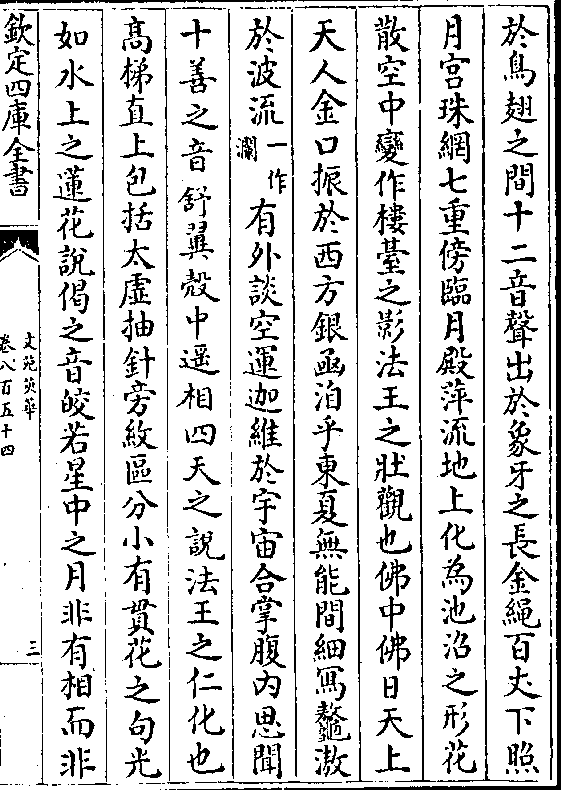 於鳥翅之間十二音聲出於象牙之長金繩百丈下照
月宮珠網七重傍臨月殿萍流地上化為池沼之形花
散空中變作樓臺之影法王之壯觀也佛中佛日天上
天人金口振於西方銀函泊乎東夏無能間細寫鼇潄
於波流一作瀾有外談空運迦維於宇宙合掌腹内思聞
十善之音舒翼殻中遥相四天之說法王之仁化也
髙梯直上包括太虚抽針旁紋區分小有貫花之句光
如水上之蓮花說偈之音皎若星中之月非有相而非
欽定四庫全書
文苑英華
卷八百五十四
三